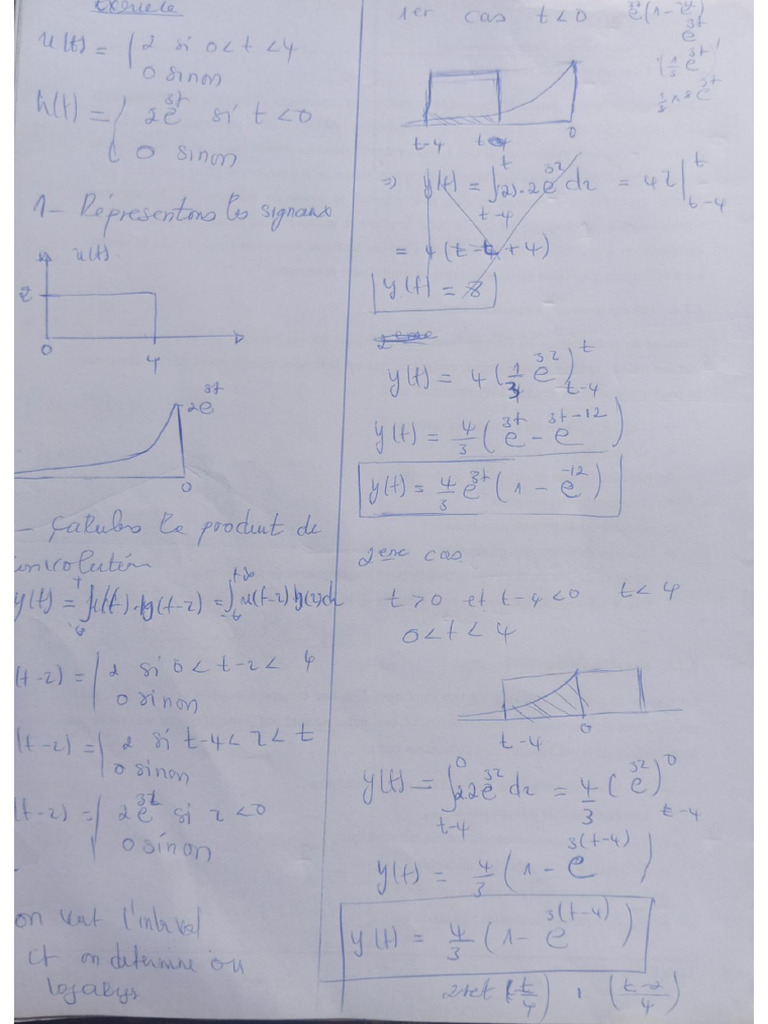 Exercice
x(t) = { 2 si 0 < t < 4
0 sinon
h(t) = { 2e^3t si t < 0
0 sinon
1- Représentons les signaux
x(t)
2
0
4
2e^3t
0
- Calculons le produit de
y(t) = x(t) . h(t-τ) = ∫ x(t-τ) h(τ)dτ
(t-τ) = { 2 si 0 < t-τ < 4
0 sinon
(t-τ) = { 2 si t-4 < τ < t
0 sinon
(t-τ) = { 2e^3τ si τ < 0
0 sinon
on veut l'interval
et on determine ou
1er cas t < 0
t-4
0
⇒ y(t) = ∫_{t-4}^{t} (2).2e^3τ dτ = 4τ |_{t-4}^{t}
= 4(t - t + 4)
y(t) = 8
y(t) = 4(1/3 e^3τ)_{t-4}^{t}
y(t) = 4/3 (e^3t - e^3t-12)
y(t) = 4/3 e^3t (1 - e^-12)
2eme cas
t > 0 et t-4 < 0 t < 4
0 < t < 4
t-4
0
y(t) = ∫_{t-4}^{0} 2.2e^3τ dτ = 4/3 (e^3τ)_{t-4}^{0}
y(t) = 4/3 (1 - e^3(t-4))
y(t) = 4/3 (1 - e^3(t-4))
2rect (t/4) , (t-2/4)